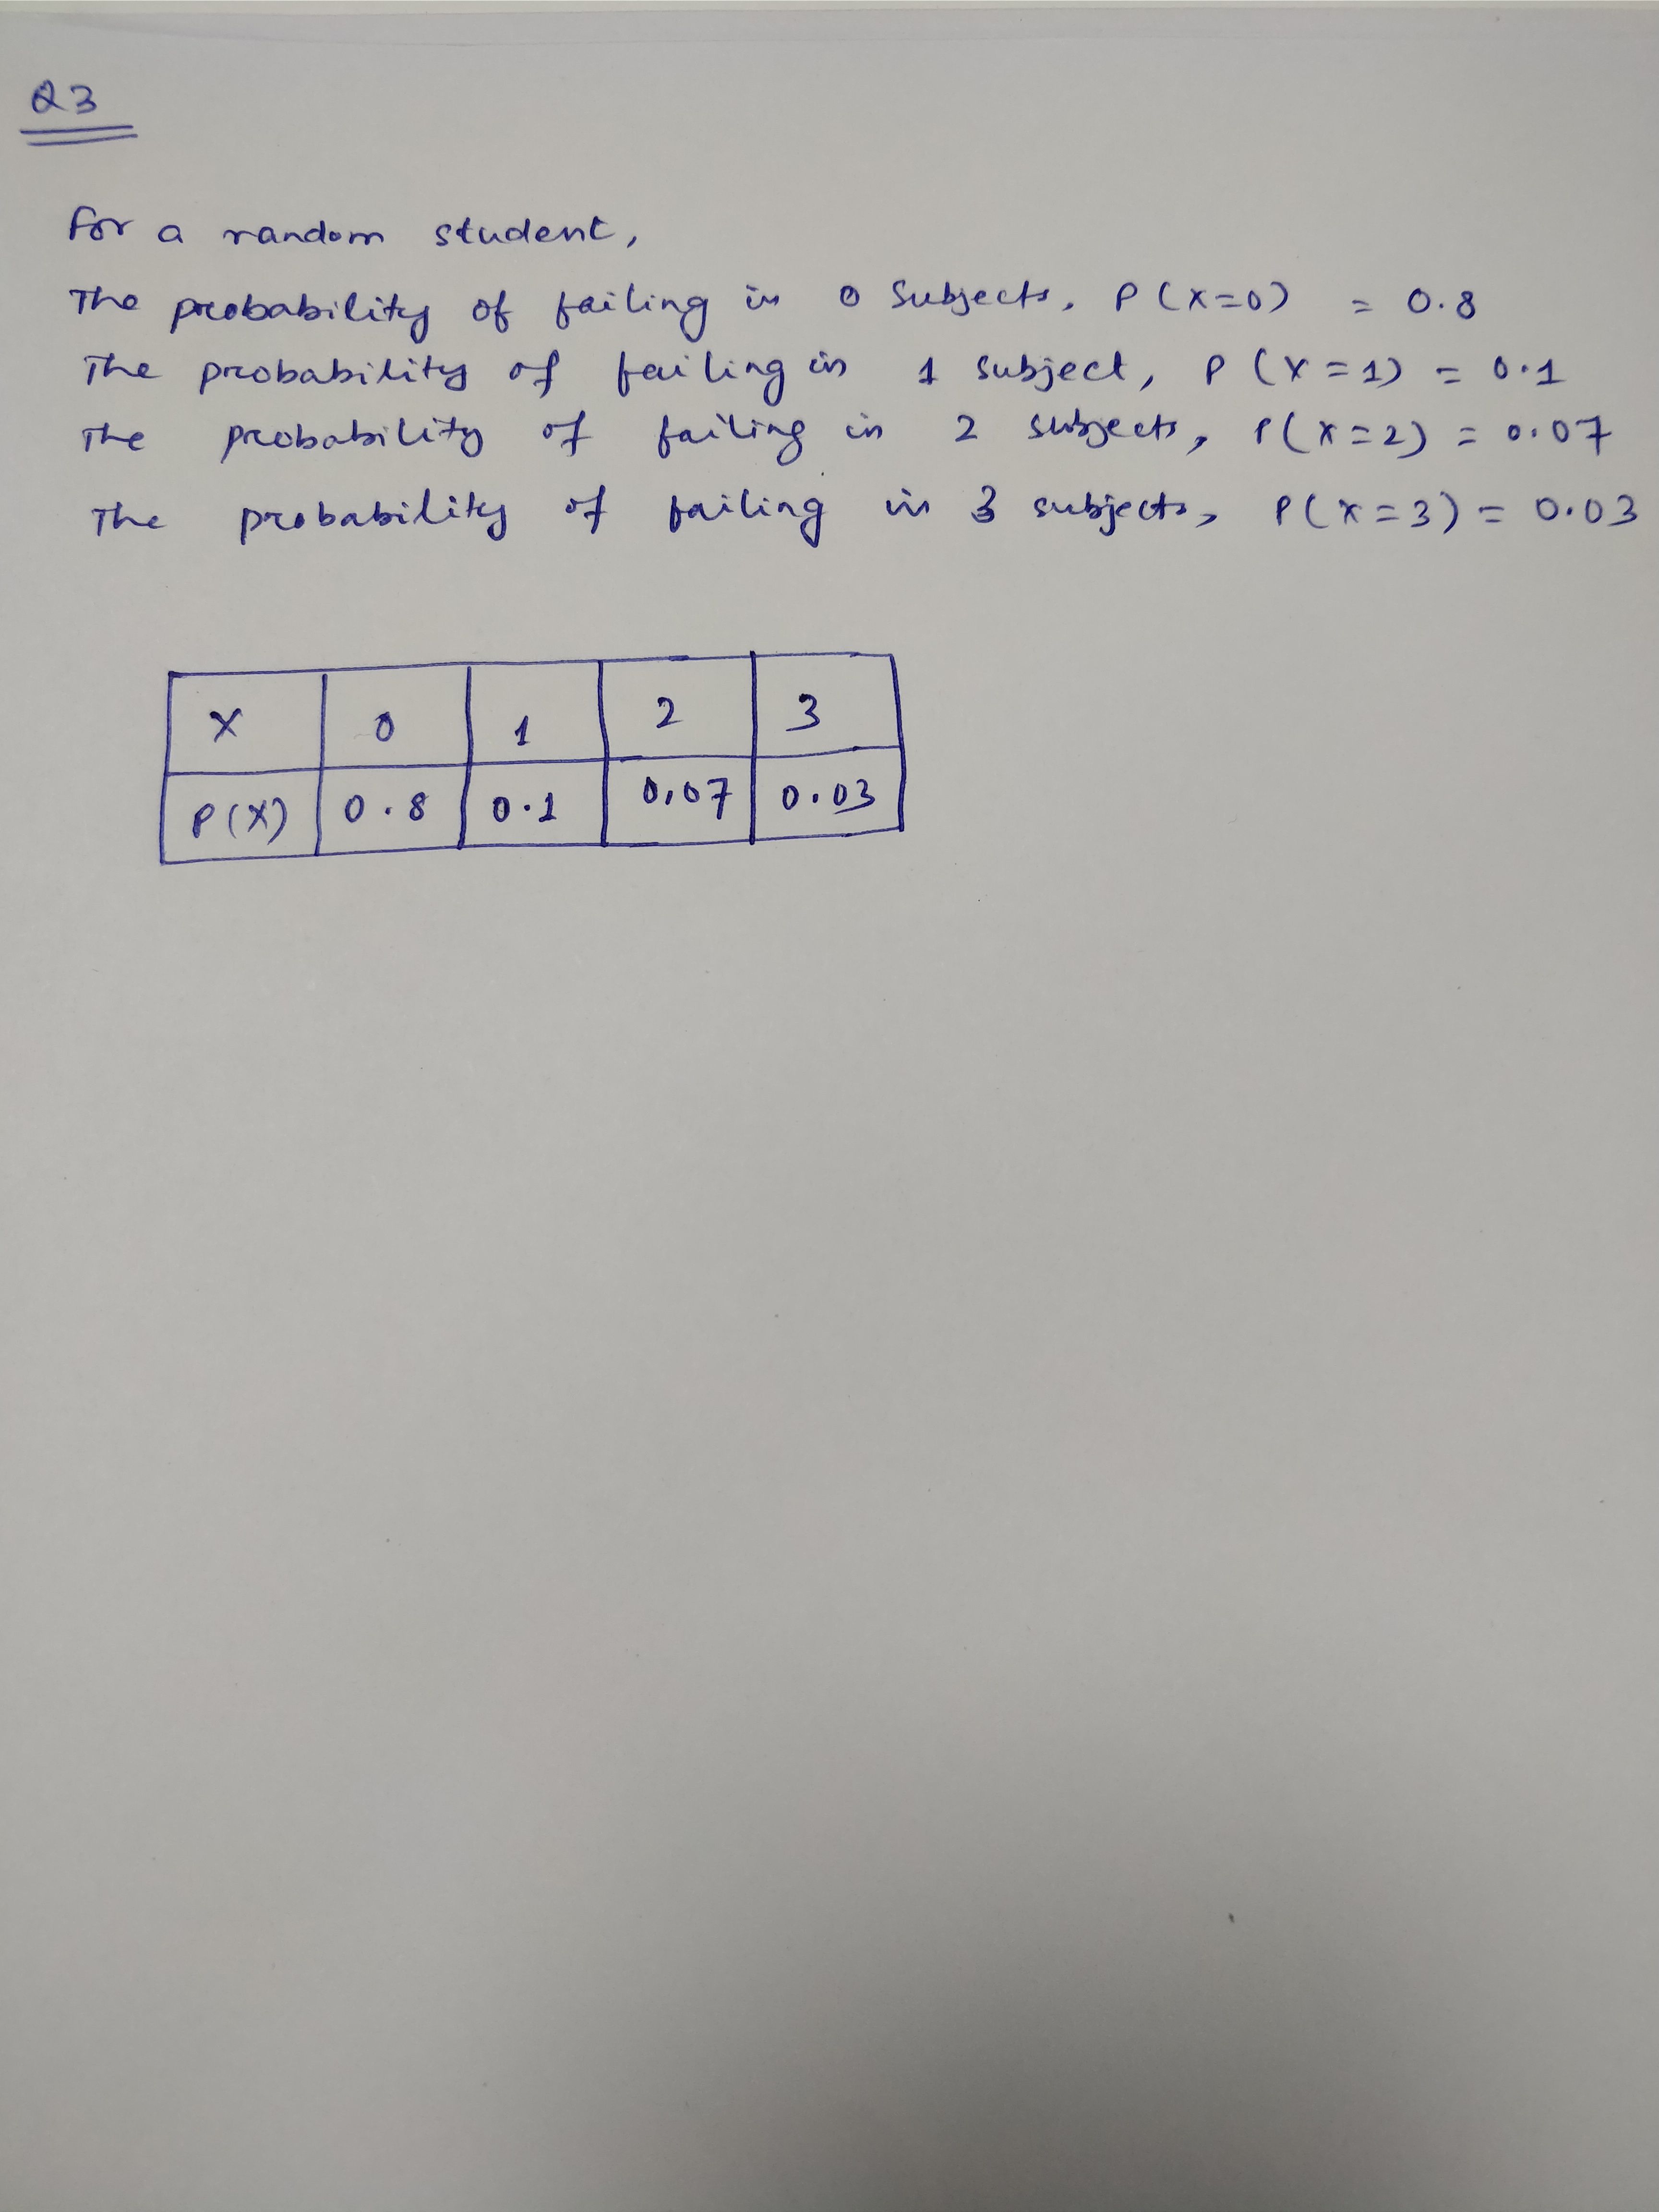 Q3
For a random student,
The probability of failing in 0 subjects, P(X=0) = 0.8
The probability of failing in 1 subject, P(X=1) = 0.1
The probability of failing in 2 subjects, P(X=2) = 0.07
The probability of failing in 3 subjects, P(X=3) = 0.03
X 0 1 2 3
P(X) 0.8 0.1 0.07 0.03